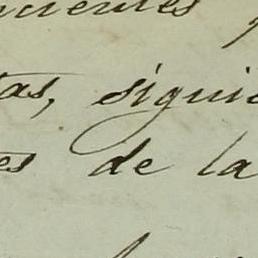 cientes
tas, siguie
es de la